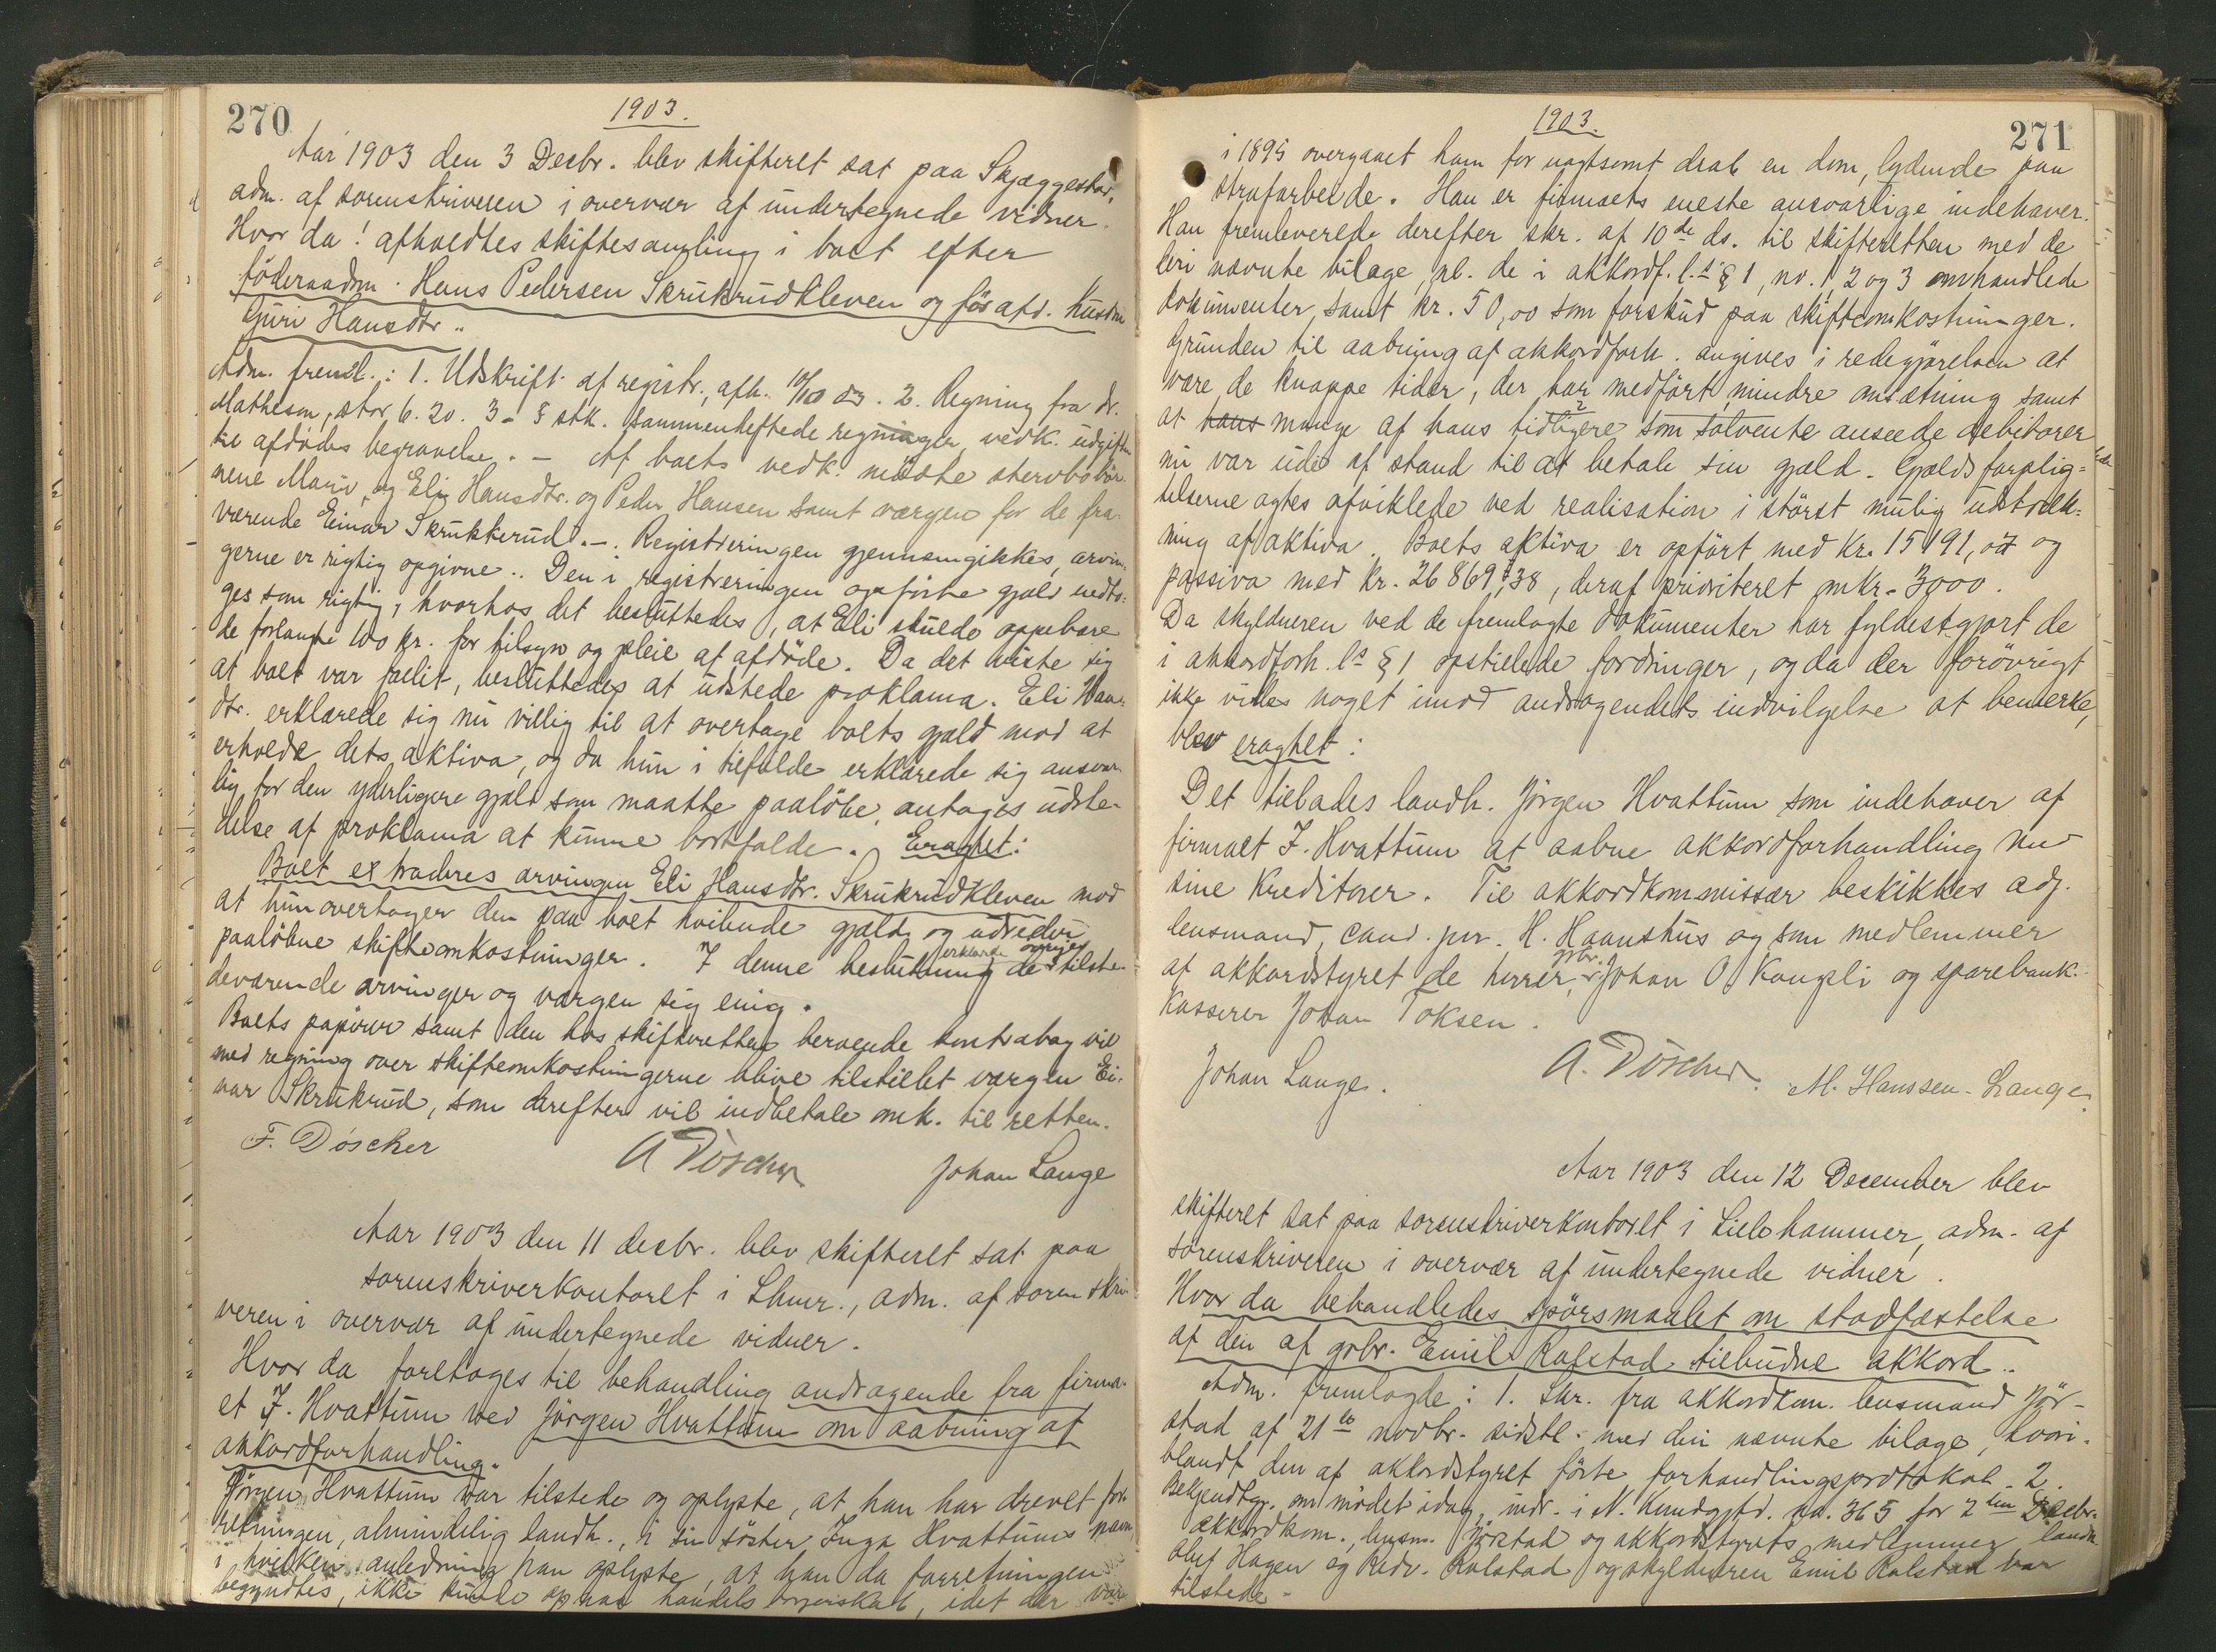 270
1903.
Aar 1903 den 3 Decbr. blev skifteret sat paa Skjæggestad,
adm. af sorenskriveren i overvær af undertegnede vidner.
Hvor da! afholdtes skiftesamling i boet efter
föderaadsm. Hans Pedersen Skrukrudkleven og för afd. hustru
Guri Hansdtr.
Adm. freml.: 1. Udskrift af registr., afh. 10/10 03. 2. Regning fra dr.
Matheson, stor 6.20. 3 - 8 stk. sammenheftede regninger, vedk. udgifter
til afdødes begravelse. - Af boets vedk. mødte stervbobör-
nene Mari og Eli Hansdtr. og Peder Hansen samt værgen for de fra-
værende Einar Skrukkerud. - Registreringen gjennemgikkes, arvin-
gerne er rigtig opgivne. Den i registreringen opførte gjæld vedto-
ges som rigtig, hvorhos det besluttedes, at Eli skulde oppebære
de forlangte 100 kr. for tilsyn og pleie af afdøde. Da det viste sig
at boet var fallit, besluttedes at udstede proklama. Eli Hans-
dtr. erklærede sig nu villig til at overtage boets gjæld mod at
erholde dets aktiva, og da hun i tilfælde erklærede sig ansvar-
lig for den yderligere gjæld som maatte paalöbe, antoges udste-
delse af proklama at kunne bortfalde. Eragtet:
Boet extraderes arvingen Eli Hansdtr. Skrukrudkleven mod
at hun overtager den paa boet hvilende gjæld og udreder
paalöbne skifteomkostninger. I denne beslutning erklærte de øvrige tilste-
deværende arvinger og værgen sig enig.
Boets papirer samt den hos skifteretten beroende kontrabog vil
med regning over skifteomkostningerne blive tilstillet værgen Ei-
nar Skrukrud, som derefter vil indbetale omk. til retten.
F. Döscher
A Döscher
Johan Lange
Aar 1903 den 11 decbr. blev skifteret sat paa
sorenskriverkontoret i Lhmr., adm. af sorenskri-
veren i overvær af undertegnede vidner.
Hvor da foretoges til behandling andragende fra firma-
et J. Hvattum ved Jörgen Hvattum om aabning af
akkordforhandling.
Jörgen Hvattum var tilstede og oplyste, at han har drevet for-
retningen, almindelig landh., i sin söster Inga Hvattums navn
i hvilken anledning han oplyste, at han da forretningen
begyndtes, ikke kunde opnaa handelsborgerskab, idet der var
271
1903.
i 1895 overgaaet ham for uagtsomt drab en dom, lydende paa
strafarbeide. Han er firmaets eneste ansvarlige indehaver.
Han fremleverede derefter skr. af 10de ds. til skifteretten med de
deri nævnte bilage, nl. de i akkordf. l.s § 1, no. 1, 2 og 3 omhandlede
dokumenter, samt kr. 50,00 som forskud paa skifteomkostninger.
Grunden til aabning af akkordforh. angives i redegjørelsen at
være de knappe tider, der har medfört mindre omsætning samt
at hans mange af hans tidligere som solvente anseede debitorer
nu var ude af stand til at betale sin gjæld. Gjældsforplig-
telserne agtes afviklede ved realisation i störst mulig udstræk-
ning af aktiva. Boets aktiva er opfört med kr. 15191,07 og
passiva med kr. 26869,38, deraf prioriteret m kr. 3000.
Da skyldneren ved de fremlagte dokumenter har fyldestgjort de
i akkordforh. ls § 1 opstillede fordringer, og da der forövrigt
ikke vides noget imod andragendets indvilgelse at bemerke,
blev eragtet:
Det tillades landh. Jörgen Hvattum som indehaver af
firmaet J. Hvattum at aabne akkordforhandling med
sine kreditorer. Til akkordkommissær beskikkes adj.
lensmand, cand. jur. H. Haanshus og som medlemmer
af akkordstyret de herrer, gbr. Johan O. Kongsli og sparebank-
kasserer Johan Toksen.
Johan Lange.
A. Döscher.
M. Hanssen-Lange.
Aar 1903 den 12 December blev
skifteret sat paa sorenskriverkontoret i Lillehammer, adm. af
sorenskriveren i overvær af undertegnede vidner.
Hvor da behandledes spörsmaalet om stadfæstelse
af den af gbr. Emil Rolstad tilbudne akkord.
Adm. fremlagde: 1. Skr. fra akkordkom. lensmand Jör-
stad af 21de novbr. sidstl. med deri nævnte bilage, hvori-
blandt den af akkordstyret förte forhandlingsprotokol. 2.
Bekjendtgj. om mödet idag, indr. i N. Kundgjtd. no. 365 for 2den Decbr.
Akkordkom., lensm. Jörstad og akkordstyrets medlemmer landh.
Oluf Hagen og Redv. Rolstad og skyldneren Emil Rolstad var
tilstede.